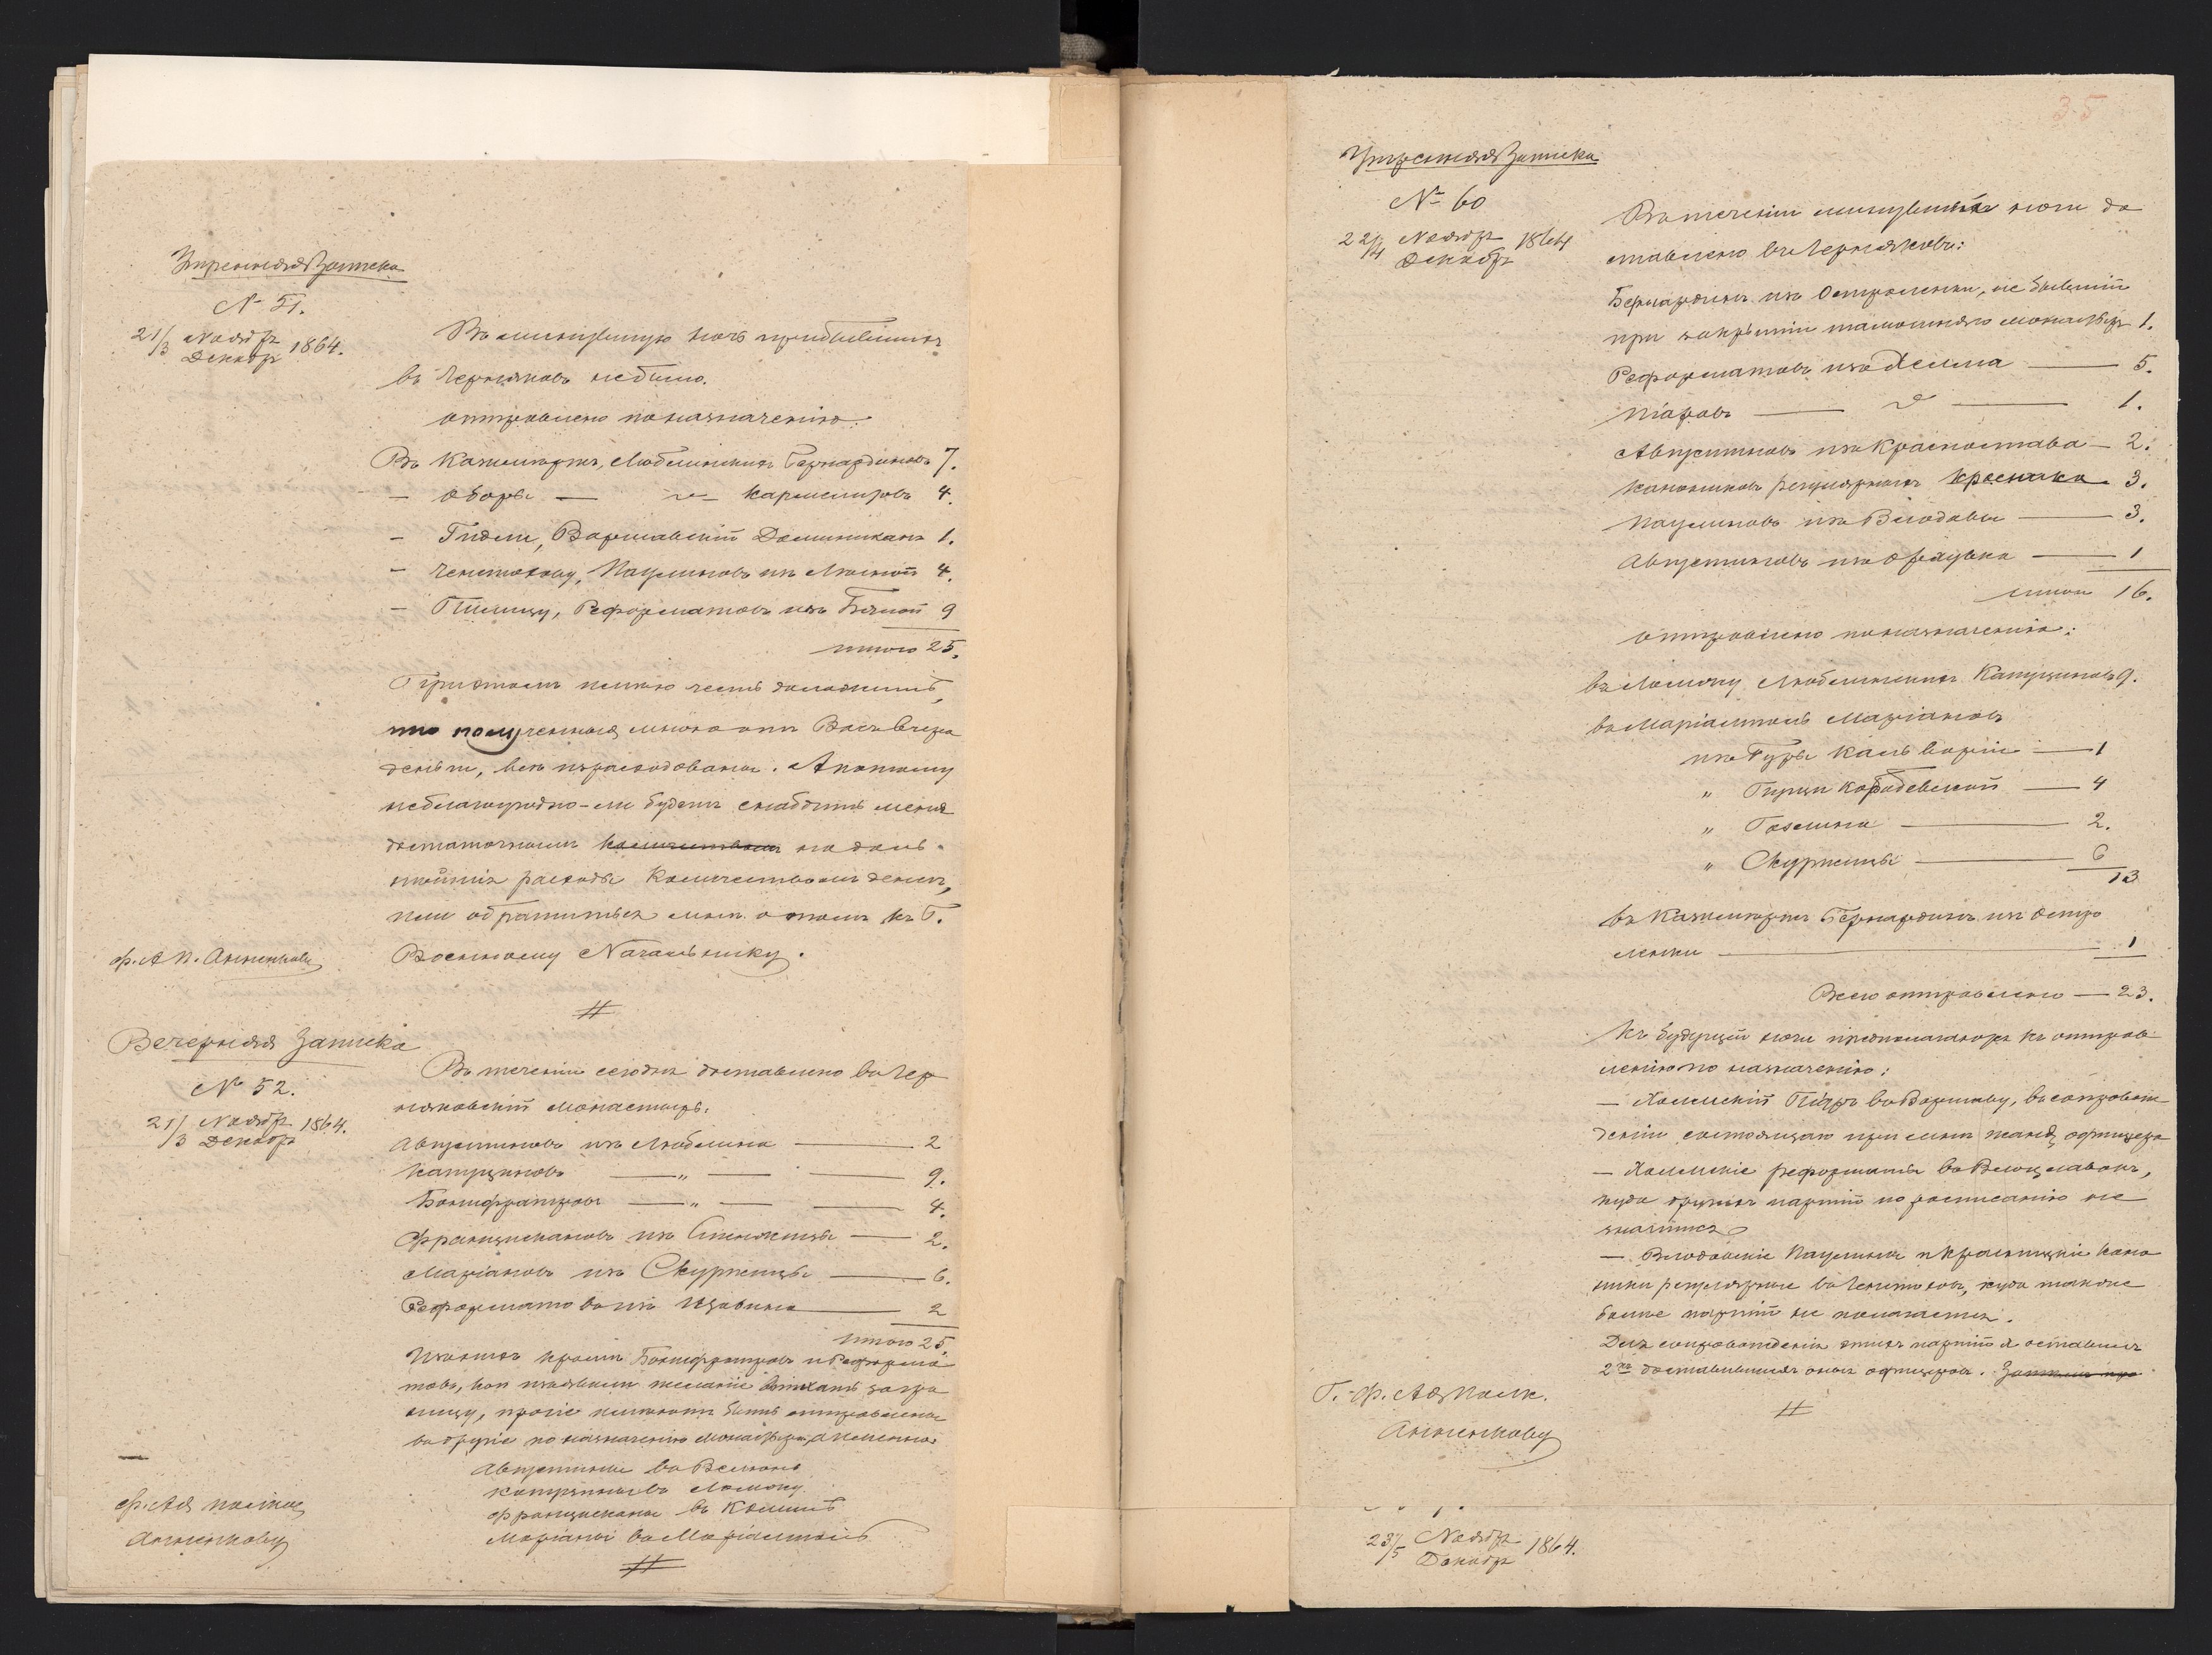 Утренняя Записка
№ 51.
21/3 Ноября Декабря 1864.
Въ минувшую ночь прибывшихъ
въ Черняковъ небыло.
отправлено по назначенію:
Въ Казимиржъ, Люблинскихъ Бернардиновъ 7.
— Оборы — „ — Кармелитовъ 4.
— Гидле, Варшавскій Доминиканъ 1.
— Ченстохову, Паулиновъ изъ Лесной 4.
— Пилицу, Реформатовъ изъ Бялой 9
итого 25.
При этомъ имѣю честь доложить,
что полученныя мною отъ Васъ вчера
деньги, всѣ израсходованы. А потому
неблагоугодно-ли будетъ снабдить меня
достаточнымъ количествомъ на даль-
нѣйшіе расходы количествомъ денегъ,
или обратиться мнѣ о томъ къ Г.
Военному Начальнику.
ф. А. П. Анненкову
Вечерняя Записка
№ 52.
21/3 Ноября Декабря 1864.
Въ теченіи сегодня доставлено въ Чер-
няковскій монастырь:
Августиновъ изъ Люблина — 2
Капуциновъ — „ — 9.
Бонифратровъ — „ — 4.
Францискановъ изъ Стенжицы — 2.
Маріановъ изъ Скуржецы — 6.
Реформатовъ изъ — 2
итого 25.
Изъ нихъ кромѣ Бонифратровъ и Реформа-
товъ, кои изъявили желаніе выѣхать загра-
ницу, прочіе имѣютъ быть отправлены
въ другіе по назначенію монастыри, а именно:
Августины въ Велюнь
Капуцины въ Ломжу
Францисканы въ Калишъ
Маріаны въ Маріамполь
ф. Ад. полков.
Анненкову
35
Утренняя Записка
№ 60
22/4 Ноября Декабря 1864
Въ теченіи минувшей ночи до-
ставлено въ Черняковъ:
Бернардинъ изъ Остроленки, не бывшій
при закрытіи тамошняго монастыря 1.
Реформатовъ изъ Хелма — 5.
Піаровъ — „ — 1.
Августиновъ изъ Красностава — 2.
Канониковъ регулярныхъ Красника 3.
Паулиновъ изъ Влодавы — 3.
Августиновъ изъ Орхувка — 1
итого 16.
отправлено по назначенію:
въ Ломжу Люблинскихъ Капуциновъ 9.
въ Маріамполь Маріановъ
изъ Гуры Кальваріи — 1
„ Пущи Корабевской — 4
„ Гозлина — 2.
„ Скуржецы — 6
13
въ Казимиржъ Бернардинъ изъ Остро-
ленки — 1
Всего отправлено — 23.
Къ будущей ночи предполагаются къ отправ-
ленію по назначенію:
— Холмскій Піаръ въ Варшаву, въ сопровож-
деніи состоящаго при мнѣ жанд. офицера
— Холмскіе реформаты въ Влоцлавокъ,
куда другихъ партій по росписанію не
значится
— Влодавскіе Паулины и Красницкіе кано-
ники регулярные въ Ченстоховъ, куда также
болѣе партій не полагается.
Для сопровожденія этихъ партій я оставилъ
2хъ доставившихъ оныхъ офицеровъ.
Г. ф. Ад. Полк.
Анненкову
23/5 Ноября Декабря 1864.